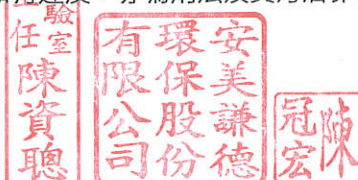 驗室
任
陳資聰
安美謙德
環保股份
有限公司
陳
冠宏